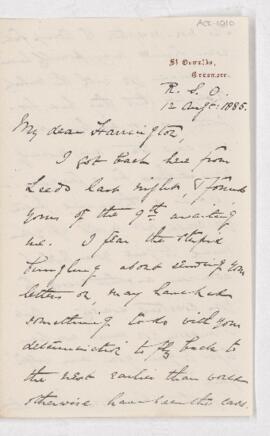 ACE-1910
St Oswalds,
Grasmere.
R. S. O.
12 Augt: 1885.
My dear Harrington,
I got back here from
Leeds last night, & found
yours of the 9th awaiting
me. I fear the stupid
bungling about sending your
letters on, may have had
something to do with your
determination to fly back to
the nest earlier than would
otherwise have been the case.